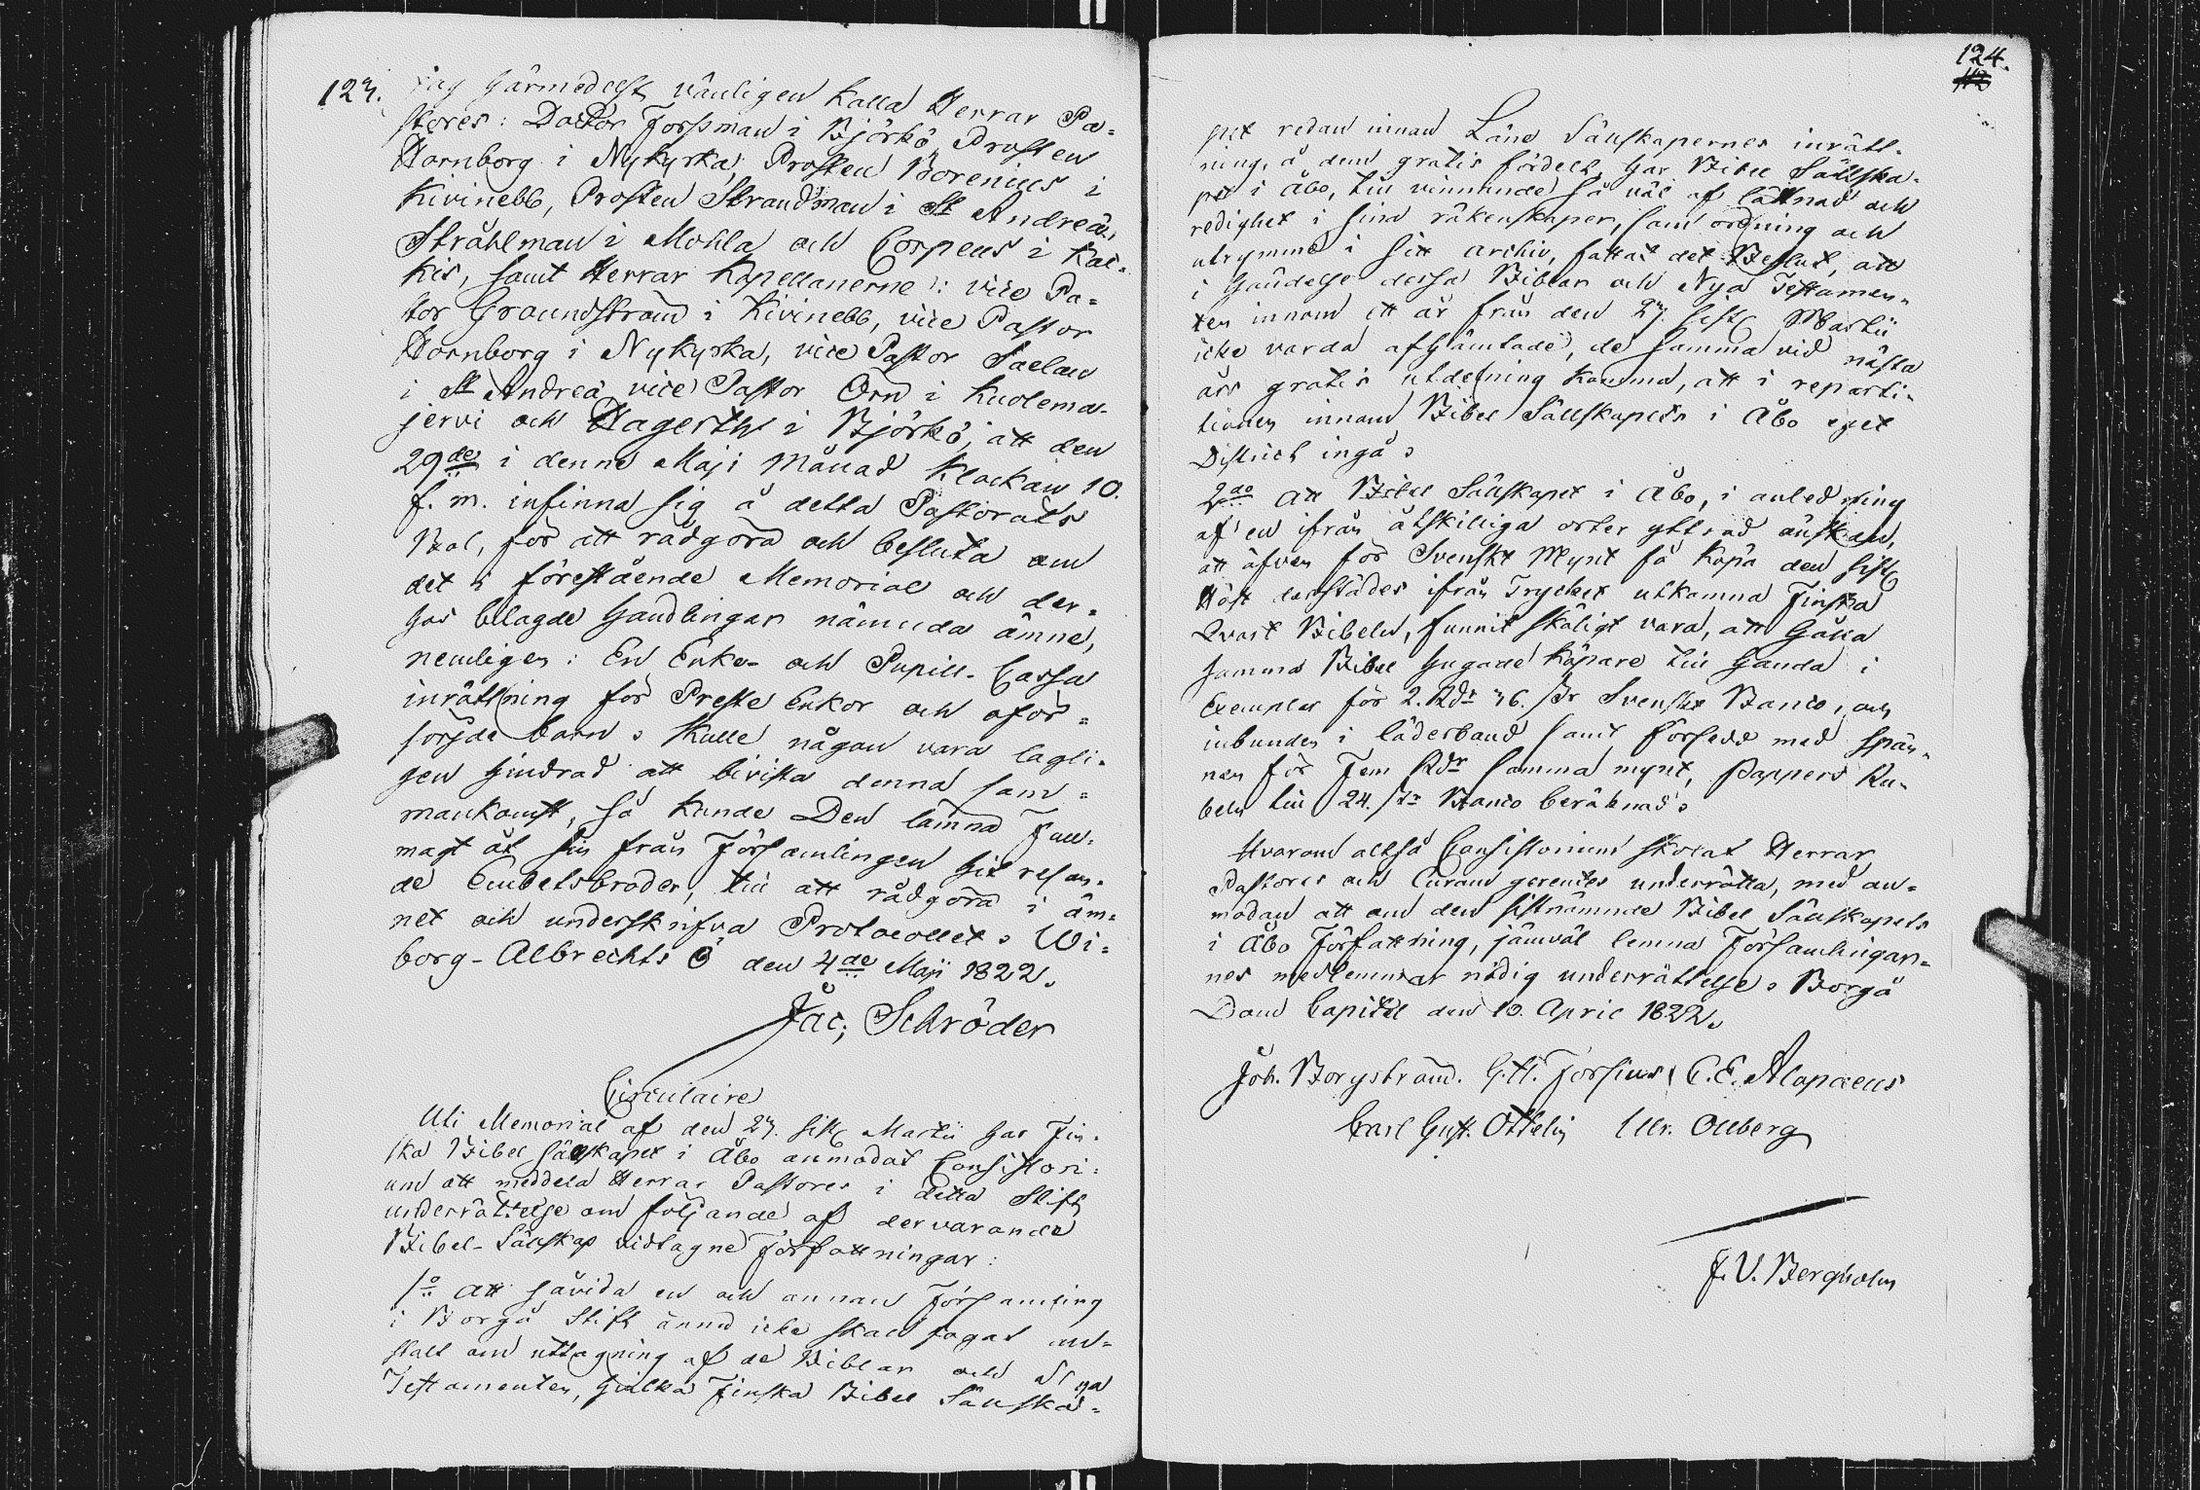 123.
jag härmedelst vänligen kalla Herrar Pa-
stores: Doctor Forssman i Björkö, Prosten
Hornborg i Nykyrka, Prosten Borenius i
Kivinebb, Prosten Strandman i St Andreæ,
Stråhlman i Mohla och Corpeus i Kac-
kis, samt Herrar Kapellanerne: vice Pa-
tor Groundström i Kivinebb, vice Pastor
Hornborg i Nykyrka, vice Pastor Saelan
i St Andreæ vice Pastor Örn i Kuolema-
jervi och Hagerth i Björkö, att den
29de i denne Maji Månad Klockan 10.
f. m. infinna sig å detta Pastorats
Bol, för att rådgöra och besluta om
det i förestående Memorial och der-
hos bilagde handlingar nämnda ämne,
nemligen: En Enke- och Pupill-Cassa
inrättning för Preste Enkor och oför-
sörjda barn. Skulle någon vara lagli-
gen hindrad att bivista denna sam-
mankomst, så kunde Den lämna Full-
magt åt sin från Församlingen hit resan-
de Embetsbroder, till att rådgöra i äm-
net och underskrifva Protocollet. Wi-
borg-Albrechts Ö den 4de Maji 1822.
Jac; Schröder
Circulaire
Uti Memorial af den 27. sistl Martii har Fin-
ska Bibel Sällskapet i Åbo anmodat Consistori-
um att meddela Herrar Pastores i detta Stift
underrättelse om följande af dervarande
Bibel-Sällskap vidtagne Författningar:
1o att såvida en och annan Församling
i Borgå Stift ännu icke skall fogat an-
stalt om uttagning af de Biblar och Nya
Testamenten, hvilka Finska Bibel Sällska-
124.
pet redan innan Läne Sällskapernes inrätt-
ning, å dem gratis fördelt, har Bibel Sällska-
pet i Åbo, till vinnande så väl af lättnad och
redighet i sina räkenskaper, som ordning och
utrymme i sitt archiv, fattat det Beslut, att
i händelse dessa Biblar och Nya Testamen-
ten innom ett år från den 27. sistl Martii
icke varda afhämtade, de samma vid nästa
års gratis utdelning komma, att i reparti-
tionen innom Bibel Sällskapets i Åbo eget
District ingå.
2do att Bibel Sällskapet i Åbo, i anledning
af en ifrån åtskilliga orter yttrad önskan,
att äfven för Svenskt Mynt få köpa den sistl
Höst derstädes ifrån Trycket utkomna Finska
Qvart Bibeln, funnit skäligt vara, att hålla
samma Bibel hugade köpare till handa i
Exemplar för 2. Rdr 36. sr Svenskt Banco, och
inbunden i läderband samt försedd med spän-
nen för Fem Rdr samma mynt, Pappers Ru-
beln till 24. sr Banco beräknad.
Hvarom altså Consistorium skolat Herrar
Pastores och Curam gerentes underrätta, med an-
modan att om den sistnämnde Bibel Sällskapets
i Åbo Författning, jämväl lemna Församlingar-
nes medlemmar nödig underrättelse. Borgå
Dom Capitel den 10. April 1822.
Joh. Borgström. G. H. Forsius, C. E. Alopaeus
Carl Gust. Ottelin Ulr. Ollberg
F. V. Bergholm